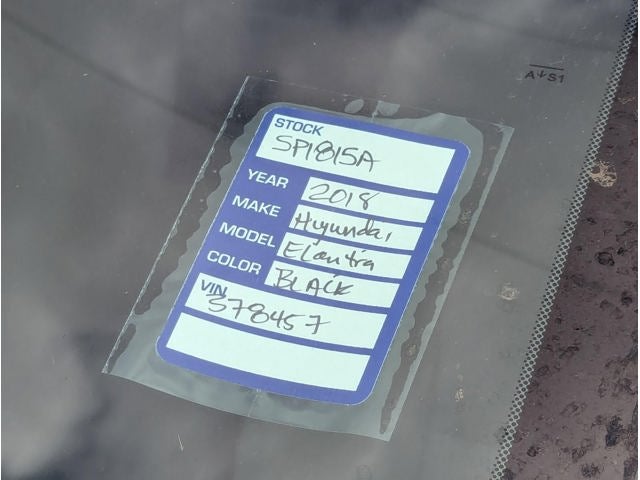 A↓S1
STOCK
SP1815A
YEAR 2018
MAKE Hyundai
MODEL Elantra
COLOR BLACK
VIN
378457